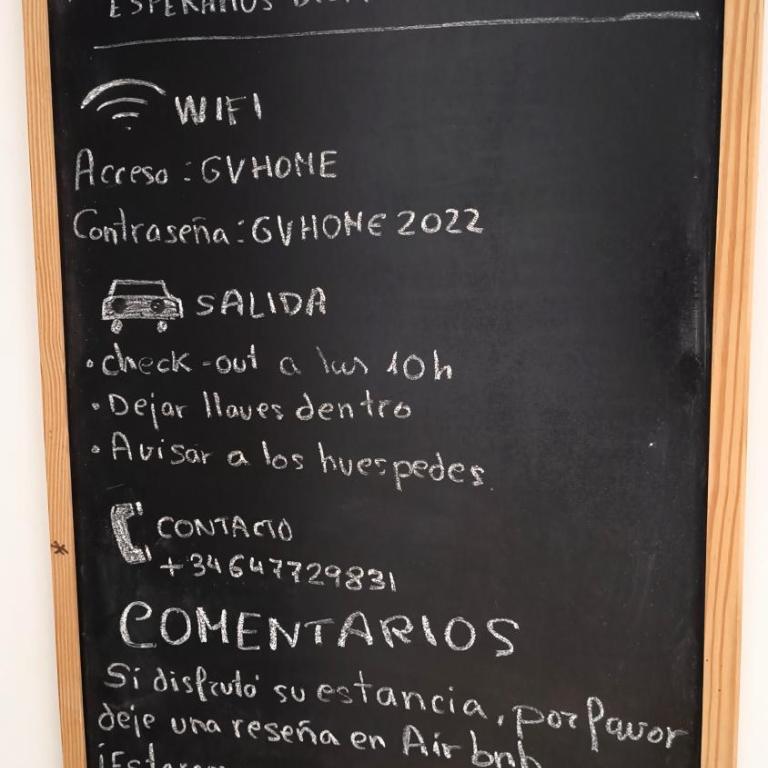 ESPERAMOS
WIFI
Acceso : GVHOME
Contraseña : GVHOME 2022
SALIDA
• check-out a las 10h
• Dejar llaves dentro
• Avisar a los huespedes.
CONTACTO
+34647729831
COMENTARIOS
Si disfrutó su estancia, por favor
deje una reseña en Air bnb